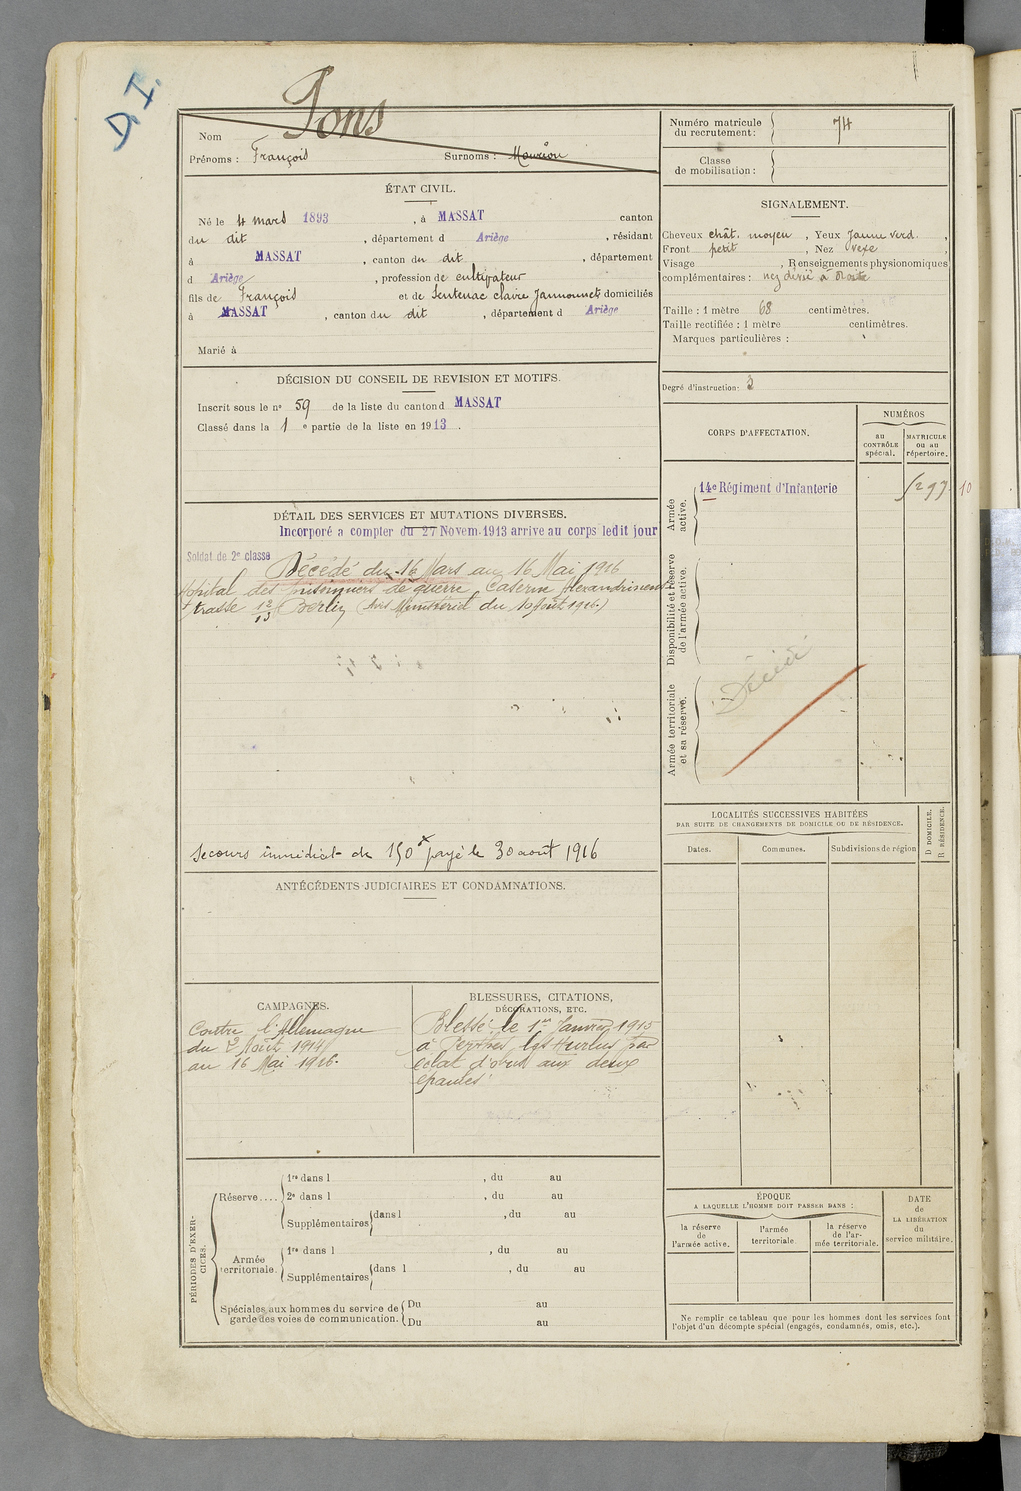 D.I.
Nom Pons
Prénoms : François Surnoms :
ÉTAT CIVIL.
Né le 4 mars 1893, à MASSAT canton
du dit, département d Ariège, résidant
à MASSAT, canton du dit, département
d Ariège, profession de cultivateur
fils de François et de Sentenac claire domiciliés
à MASSAT, canton du dit, département d Ariège
Marié à
DÉCISION DU CONSEIL DE REVISION ET MOTIFS.
Inscrit sous le nº 59 de la liste du canton d MASSAT
Classé dans la 1 e partie de la liste en 1913.
DÉTAIL DES SERVICES ET MUTATIONS DIVERSES.
Incorporé a compter du 27 Novem. 1913 arrive au corps ledit jour
Soldat de 2e classe
Décédé du 16 Mars au 16 Mai 1916
Hôpital des prisonniers de guerre, Caserne Alexandrinen
strasse 12/13 Berlin (Avis Ministériel du 10 Août 1916.)
Secours immédiat de 150 f payé le 30 août 1916
ANTÉCÉDENTS JUDICIAIRES ET CONDAMNATIONS.
CAMPAGNES.
Contre l'Allemagne
du 2 Août 1914
au 16 Mai 1916.
BLESSURES, CITATIONS,
DÉCORATIONS, ETC.
Blessé le 1er Janvier 1915
à Perthes lès Hurlus par
éclat d'obus aux deux
épaules
PÉRIODES D'EXERCICES.
Réserve....
1re dans l , du au
2e dans l , du au
Supplémentaires dans l , du au
Armée territoriale.
1re dans l , du au
Supplémentaires dans l , du au
Spéciales aux hommes du service de garde des voies de communication.
Du au
Du au
Numéro matricule
du recrutement : 74
Classe
de mobilisation :
SIGNALEMENT.
Cheveux chât. moyen, Yeux jaune verd.,
Front petit, Nez vexe,
Visage , Renseignements physionomiques
complémentaires : nez dévié à droite
Taille : 1 mètre 68 centimètres.
Taille rectifiée : 1 mètre centimètres.
Marques particulières :
Degré d'instruction : 3
CORPS D'AFFECTATION.
NUMÉROS
au
CONTRÔLE
spécial.
MATRICULE
ou au
répertoire.
Armée
active.
14e Régiment d'Infanterie
10
Disponibilité et réserve
de l'armée active.
Armée territoriale
et sa réserve.
Décédé
LOCALITÉS SUCCESSIVES HABITÉES
PAR SUITE DE CHANGEMENTS DE DOMICILE OU DE RÉSIDENCE.
Dates.
Communes.
Subdivisions de région
D DOMICILE.
R RÉSIDENCE.
ÉPOQUE
A LAQUELLE L'HOMME DOIT PASSER DANS :
la réserve
de
l'armée active.
l'armée
territoriale.
la réserve
de l'ar-
mée territoriale.
DATE
de
LA LIBÉRATION
du
service militaire.
Ne remplir ce tableau que pour les hommes dont les services font
l'objet d'un décompte spécial (engagés, condamnés, omis, etc.).